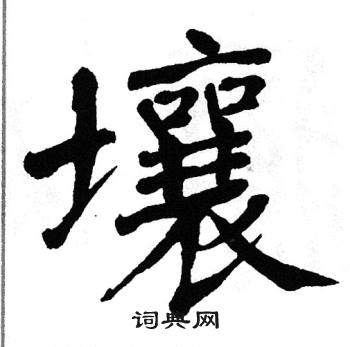 壤
词典网